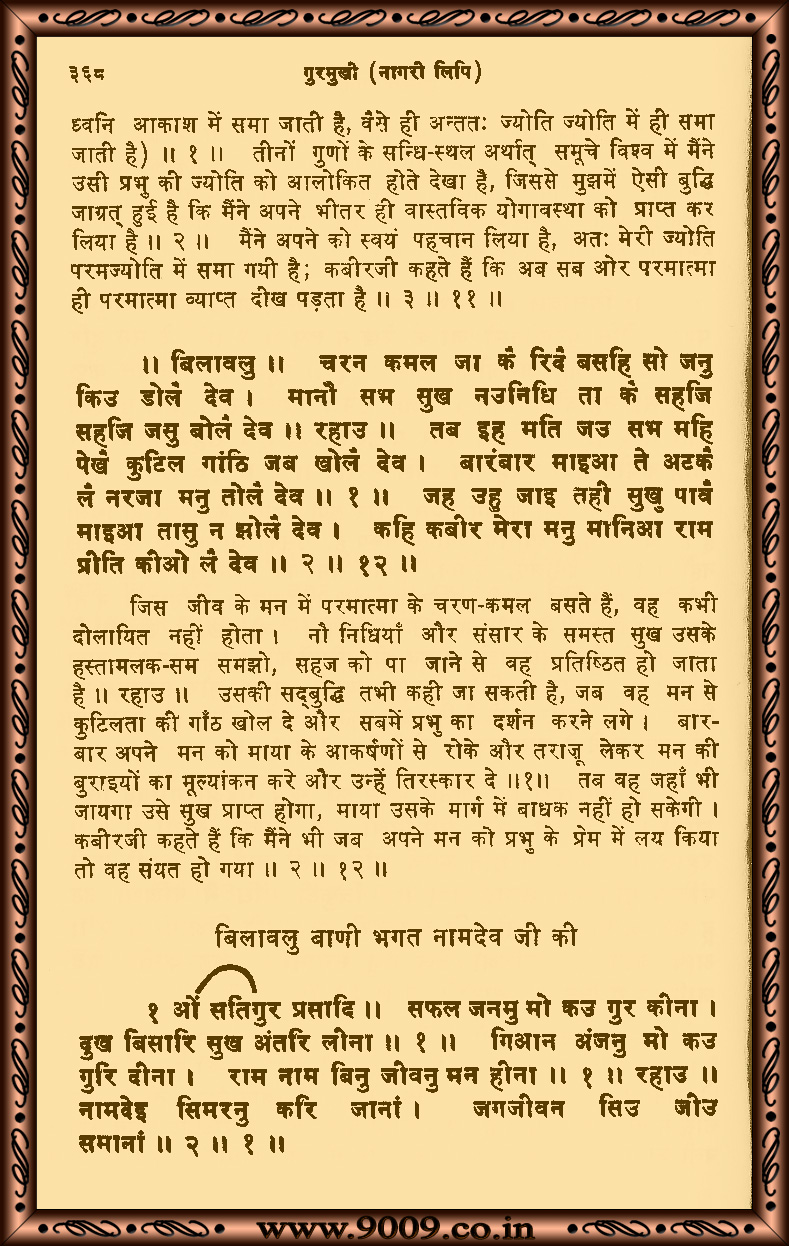 ३६८ गुरमुखी (नागरी लिपि)
ध्वनि आकाश में समा जाती है, वैसे ही अन्ततः ज्योति ज्योति में ही समा
जाती है) ॥ १ ॥ तीनों गुणों के सन्धि-स्थल अर्थात् समूचे विश्व में मैंने
उसी प्रभु की ज्योति को आलोकित होते देखा है, जिससे मुझमें ऐसी बुद्धि
जाग्रत् हुई है कि मैंने अपने भीतर ही वास्तविक योगावस्था को प्राप्त कर
लिया है ॥ २ ॥ मैंने अपने को स्वयं पहचान लिया है, अतः मेरी ज्योति
परमज्योति में समा गयी है; कबीरजी कहते हैं कि अब सब ओर परमात्मा
ही परमात्मा व्याप्त दीख पड़ता है ॥ ३ ॥ ११ ॥
॥ बिलावलु ॥ चरन कमल जा कै रिदै बसहि सो जनु
किउ डोलै देव । मानौ सभ सुख नउनिधि ता कै सहजि
सहजि जसु बोलै देव ॥ रहाउ ॥ तब इह मति जउ सभ महि
पेखै कुटिल गांठि जब खोलै देव । बारंबार माइआ ते अटकै
लै नरजा मनु तोलै देव ॥ १ ॥ जह उहु जाइ तही सुखु पावै
माइआ तासु न झोलै देव । कहि कबीर मेरा मनु मानिआ राम
प्रीति कीओ लै देव ॥ २ ॥ १२ ॥
जिस जीव के मन में परमात्मा के चरण-कमल बसते हैं, वह कभी
दोलायित नहीं होता । नौ निधियाँ और संसार के समस्त सुख उसके
हस्तामलक-सम समझो, सहज को पा जाने से वह प्रतिष्ठित हो जाता
है ॥ रहाउ ॥ उसकी सद्बुद्धि तभी कही जा सकती है, जब वह मन से
कुटिलता की गाँठ खोल दे और सबमें प्रभु का दर्शन करने लगे । बार-
बार अपने मन को माया के आकर्षणों से रोके और तराजू लेकर मन की
बुराइयों का मूल्यांकन करे और उन्हें तिरस्कार दे ॥१॥ तब वह जहाँ भी
जायगा उसे सुख प्राप्त होगा, माया उसके मार्ग में बाधक नहीं हो सकेगी ।
कबीरजी कहते हैं कि मैंने भी जब अपने मन को प्रभु के प्रेम में लय किया
तो वह संयत हो गया ॥ २ ॥ १२ ॥
बिलावलु बाणी भगत नामदेव जी की
१ ओं सतिगुर प्रसादि ॥ सफल जनमु मो कउ गुर कीना ।
दुख बिसारि सुख अंतरि लीना ॥ १ ॥ गिआन अंजनु मो कउ
गुरि दीना । राम नाम बिनु जीवनु मन हीना ॥ १ ॥ रहाउ ॥
नामदेइ सिमरनु करि जानां । जगजीवन सिउ जीउ
समानां ॥ २ ॥ १ ॥
www.9009.co.in